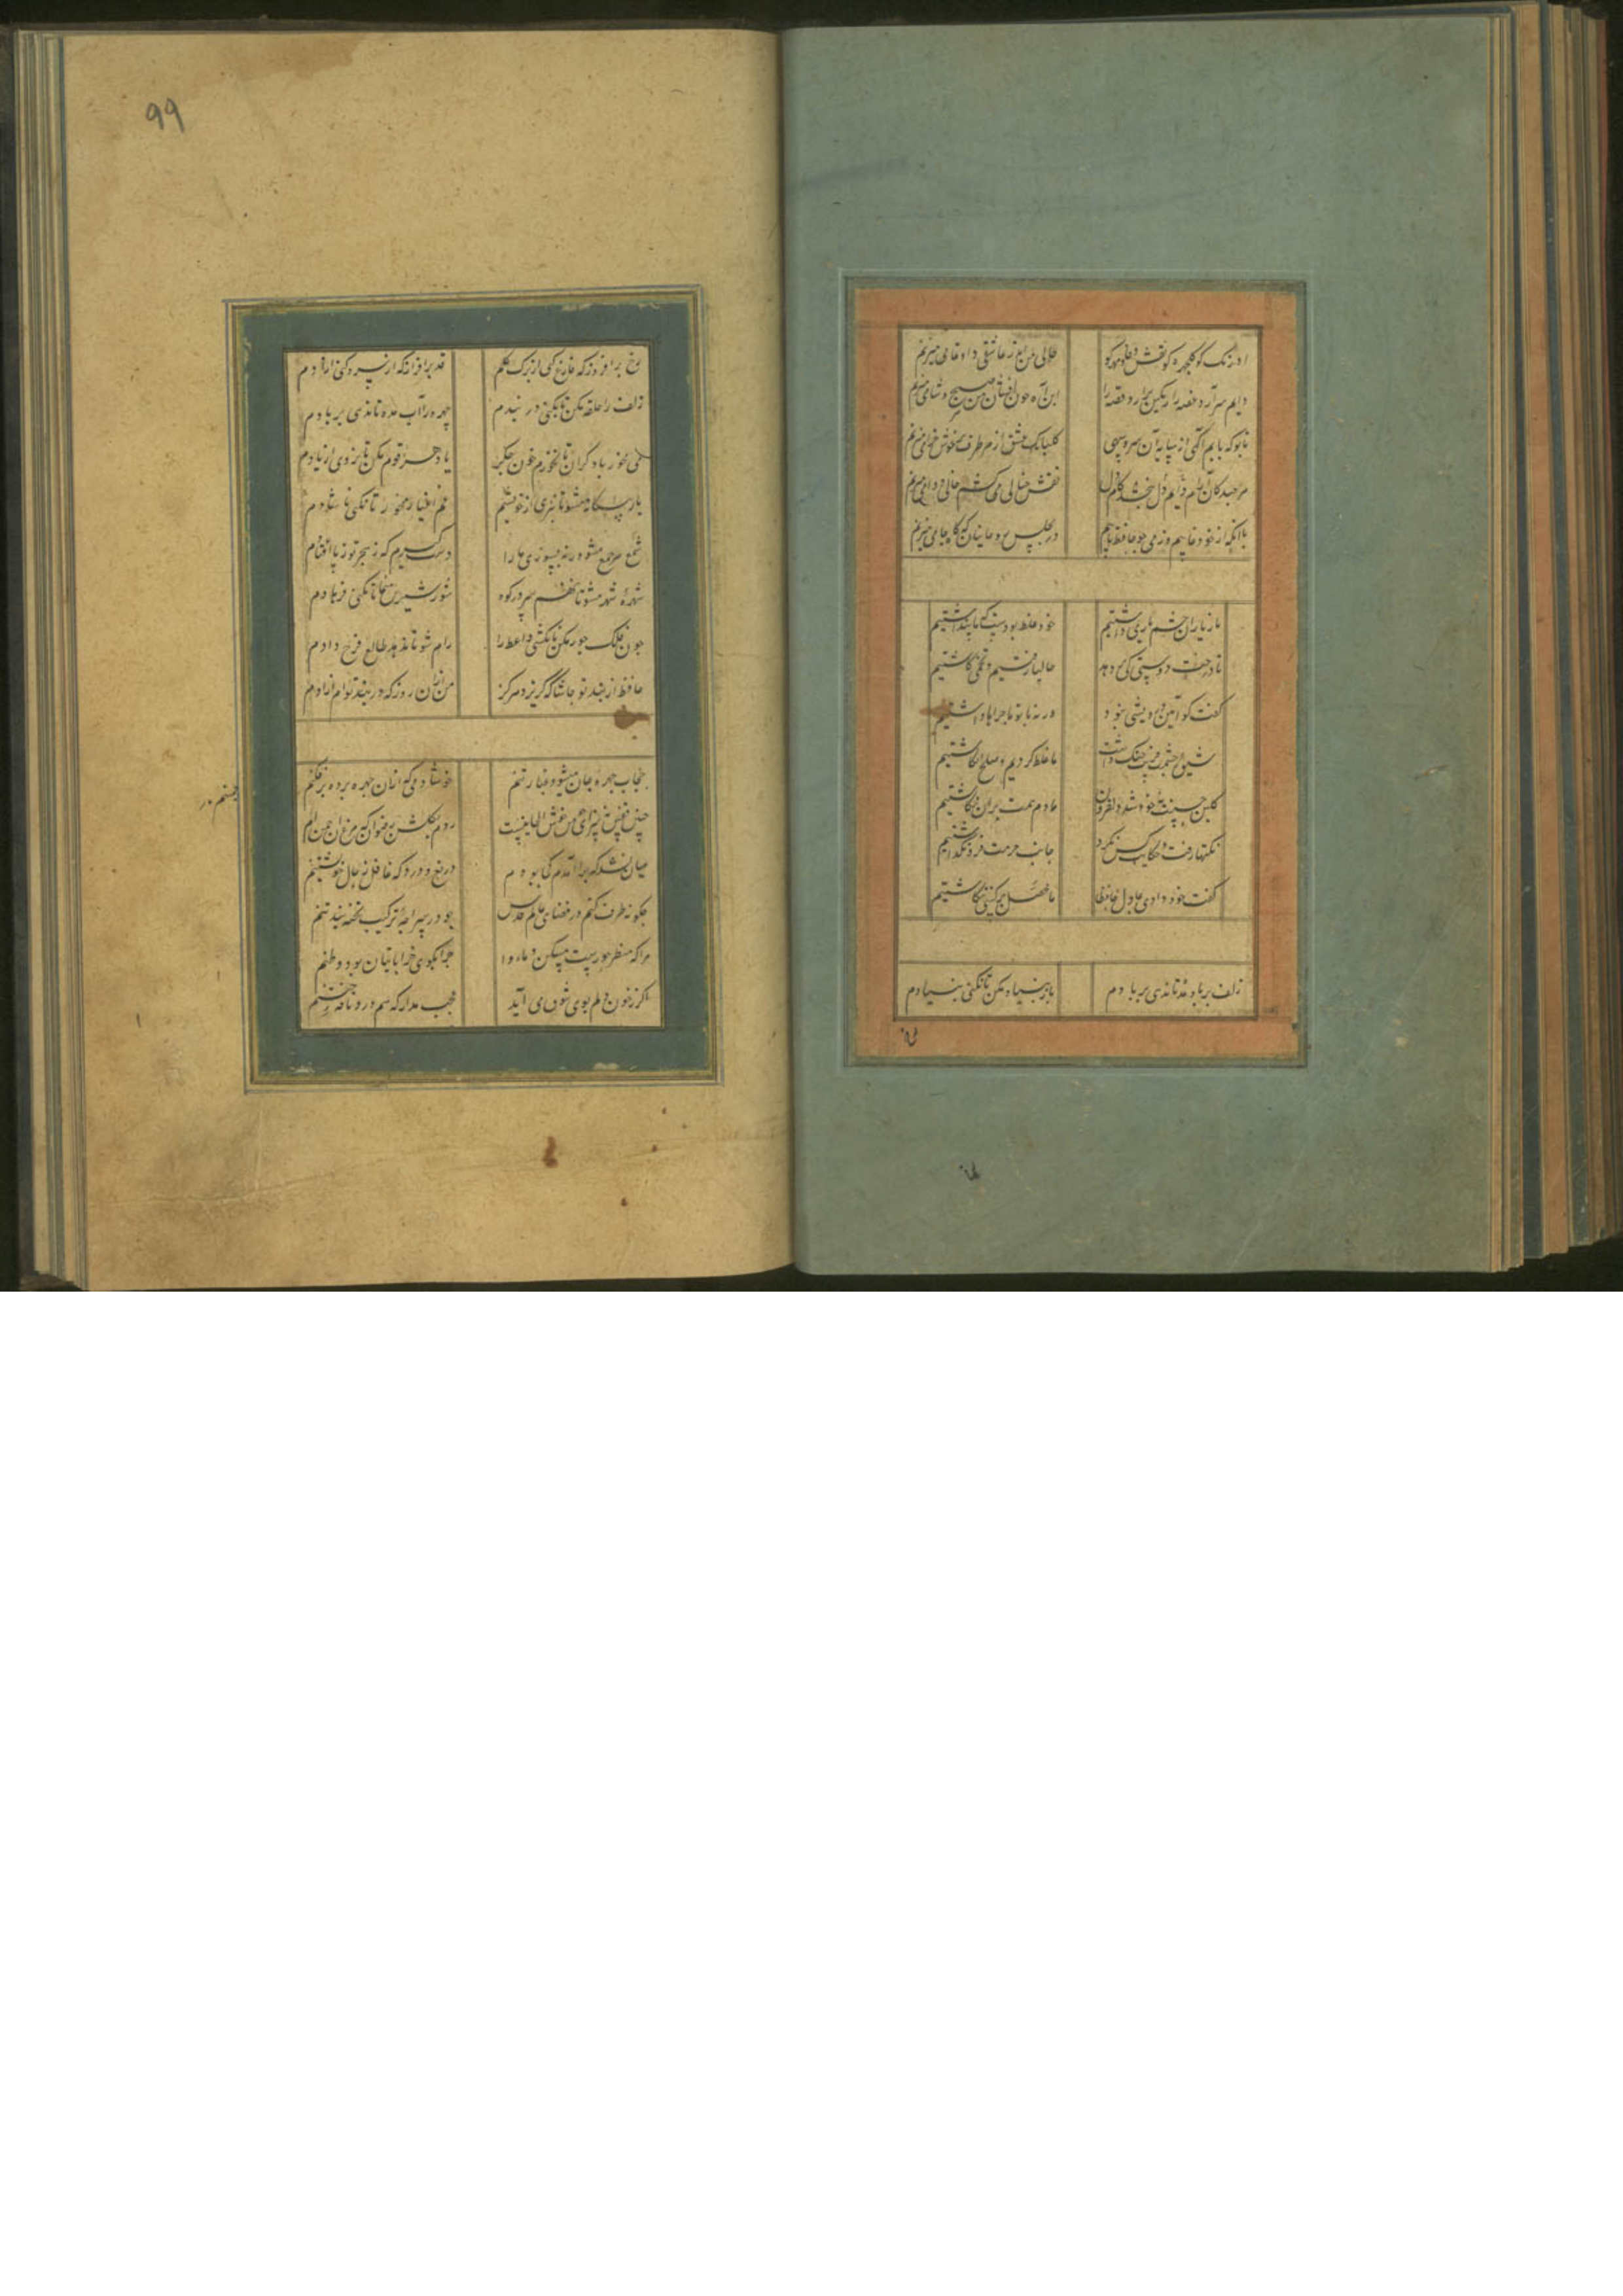 اورنک کو کلچهره کو نقش وفا و مهر کو
حالی من اندر عاشقی داو تمامی میزنم
دایم سر آرد غصه را رنکین برآرد قصه را
این آه خون افشان که من هر صبح و شامی میزنم
تا بو که یابم آکهی از سایه آن سرو سهی
کلبانک عشق از هر طرف بر خوش خرامی میزنم
هر چند کان آرام دل دانم نبخشد کام دل
نقش خیالی می کشم فال دوامی میزنم
با آنکه از خود غایبم وز می چو حافظ تایبم
در مجلس روحانیان که کاه جامی میزنم
ما ز یاران چشم یاری داشتیم
خود غلط بود آنچه ما پنداشتیم
تا درخت دوستی کی بر دهد
حالیا رفتیم و تخمی کاشتیم
گفت کو آیین درویشی نبود
ورنه با تو ماجراها داشتیم
شیوه چشمت فریب جنک داشت
ما غلط کردیم و صلح انکاشتیم
کلبن حسنت نه خود شد دلفروز
ما دم همت بر آن بکماشتیم
نکتها رفت و شکایت کس نکرد
جانب حرمت فرو نکذاشتیم
گفت خود دادی بما دل حافظا
ما محصل بر کسی نکماشتیم
زلف بر باد مده تا ندهی بر بادم
ناز بنیاد مکن تا نکنی بنیادم
99
رخ برافروز که فارغ کنی از برک کلم
قد برافراز که از سرو کنی آزادم
زلف را حلقه مکن تا نکنی در بندم
چهره را آب مده تا ندهی بر بادم
می مخور با دکران تا نخورم خون جکر
یاد هر قوم مکن تا نروی از یادم
یار بیکانه مشو تا نبری از خویشم
غم اغیار مخور تا نکنی ناشادم
شمع هر جمع مشو ورنه بسوزی ما را
شهره شهر مشو تا ننهم سر در کوه
شور شیرین منما تا نکنی فرهادم
چون فلک جور مکن تا نکشی
رام شو تا بدهد طالع فرخ دادم
حافظ از بند تو حاشا که کریزد هرکز
من از آن روز که در بند توام آزادم
حجاب چهره جان میشود غبار تنم
خوشا دمی که از آن چهره پرده برفکنم
چنین قفس نه سزای من خوش الحانیست
روم بکلشن رضوان که مرغ آن چمنم
عیان نشد که چرا آمدم کجا بودم
دریغ و درد که غافل ز حال خویشتنم
چکونه طوف کنم در فضای عالم قدس
چو در سراچه ترکیب تخته بند تنم
مرا که منظر حورست مسکن و ماوا
چرا بکوی خراباتیان بود وطنم
اکر ز خون دلم بوی شوق می آید
عجب مدار که هم درد نافه ختنم